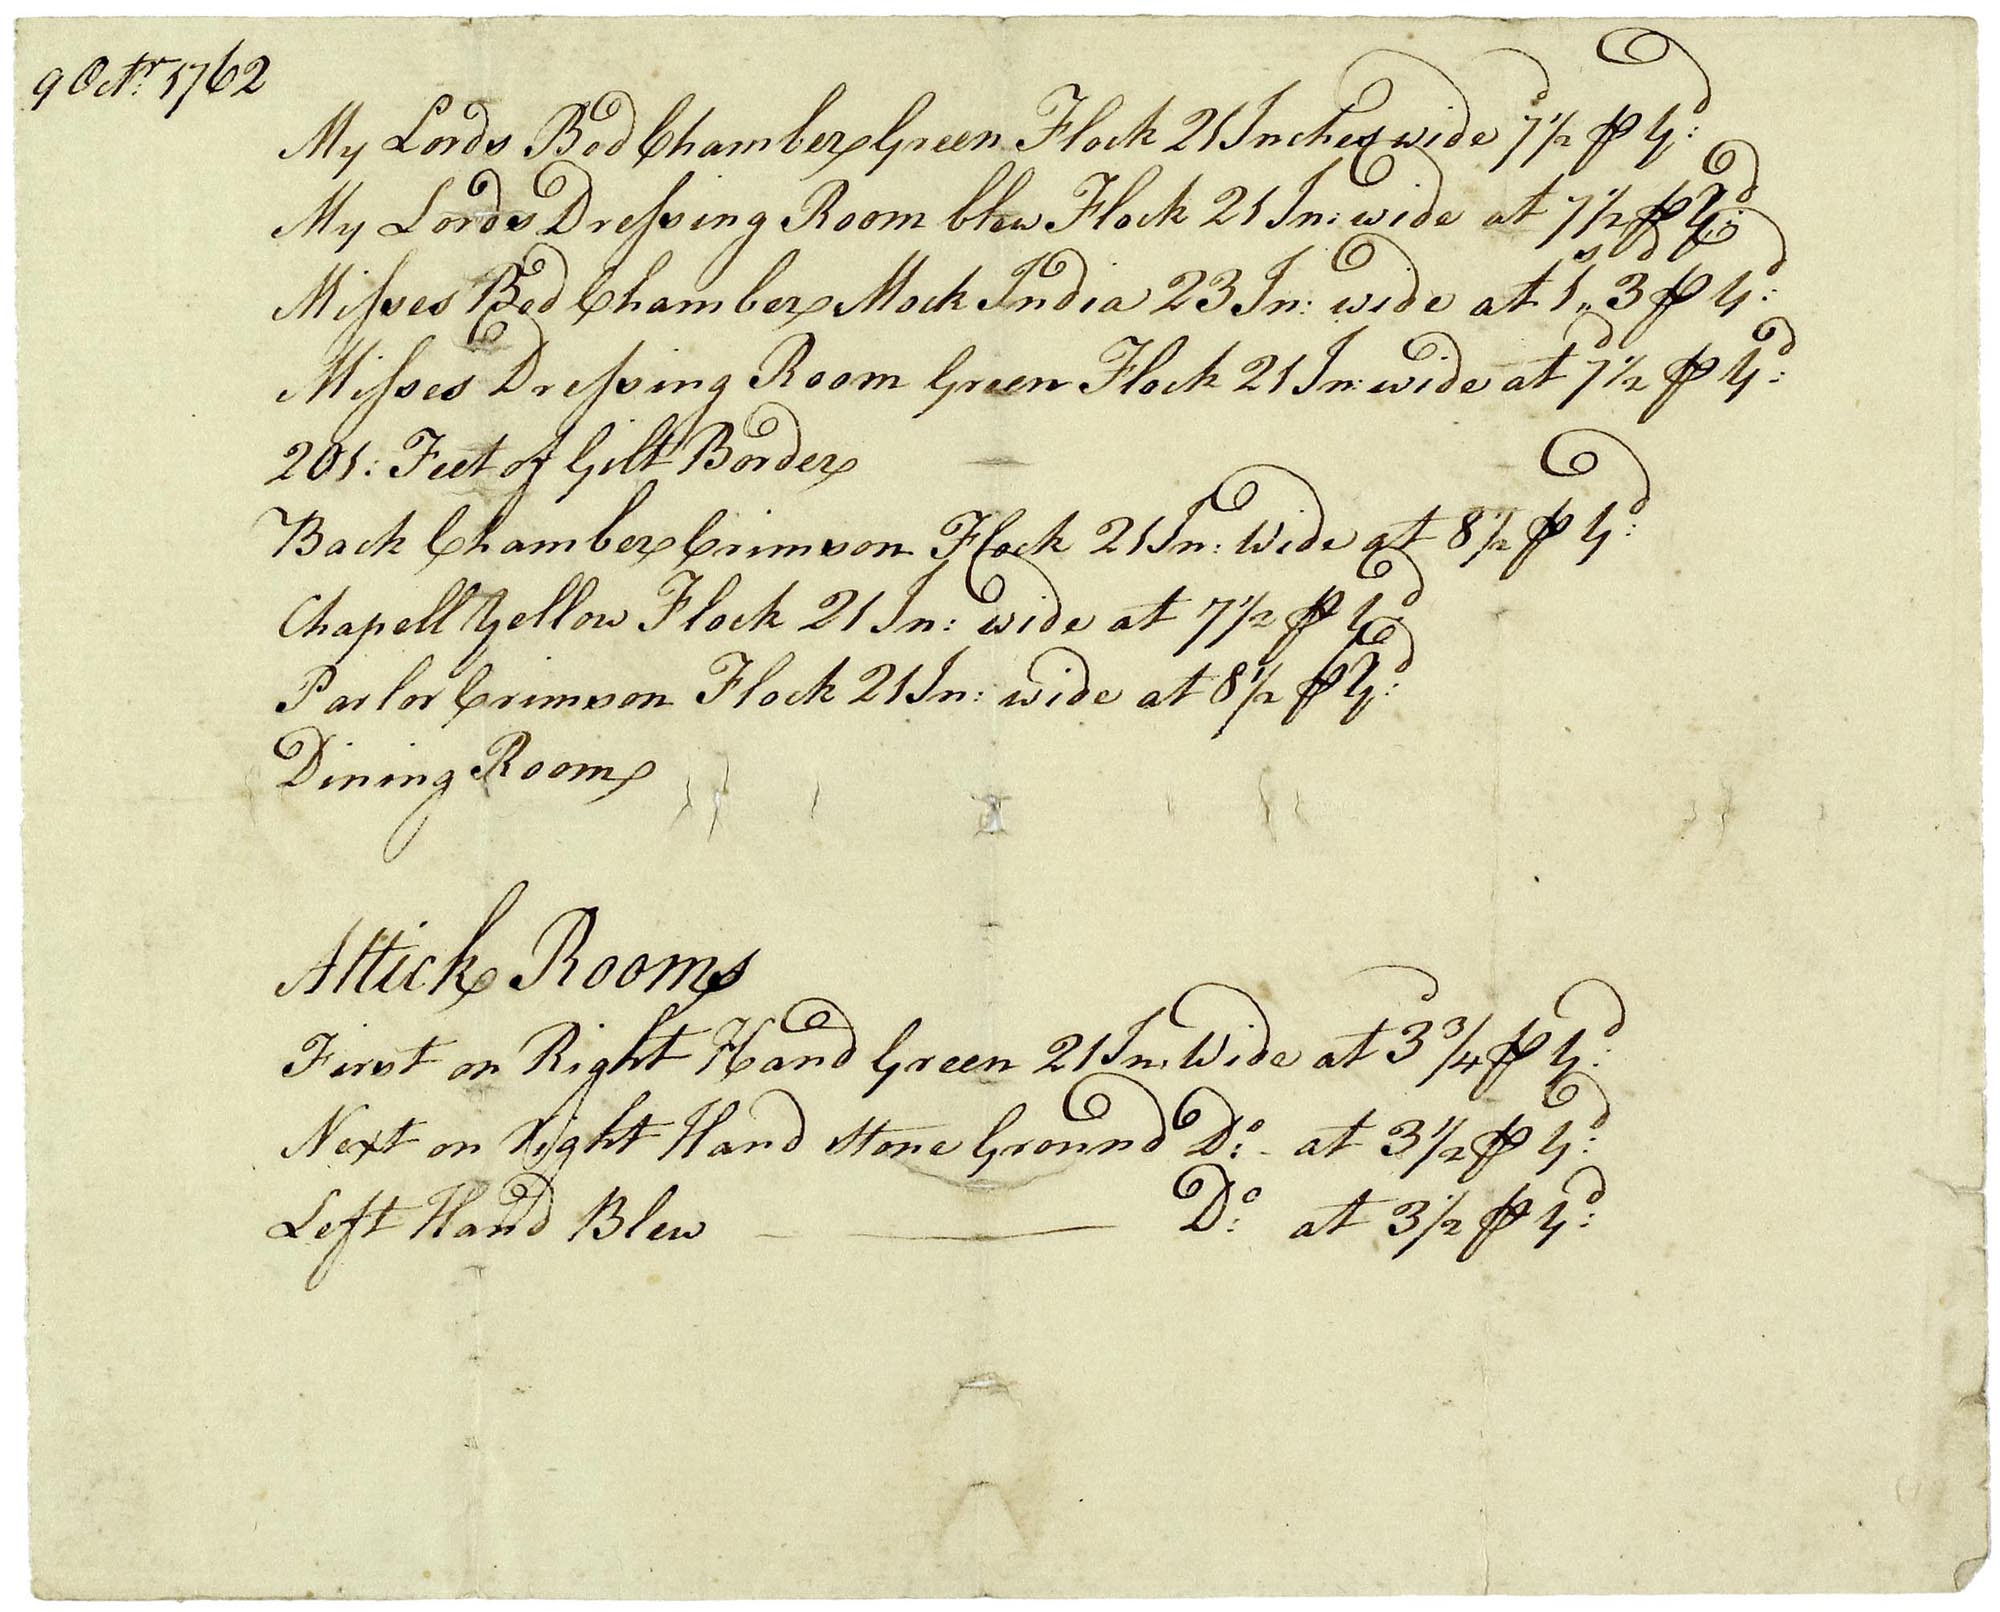 9 Octr: 1762
My Lords Bed Chamber Green Flock 21 Inches wide 7½d ⅌ Yd:
My Lords Dreſsing Room blew Flock 21 In: wide at 7½ ⅌ Yd:
Miſses Bed Chamber Mock India 23 In: wide at 1s„3d ⅌ Yd:
Miſses Dreſsing Room Green Flock 21 In: wide at 7½d ⅌ Yd:
201: Feet of Gilt Border
Back Chamber Crimson Flock 21 In: Wide at 8½ ⅌ Yd:
Chapell Yellow Flock 21 In: wide at 7½ ⅌ Yd:
Parlor Crimson Flock 21 In: wide at 8½ ⅌ Yd:
Dining Room
Attick Rooms
First on Right Hand Green 21 In: Wide at 3¾d ⅌ Yd:
Next on Right Hand Stone Ground Do: - at 3½ ⅌ Yd:
Left Hand Blew — Do: at 3½ ⅌ Yd: